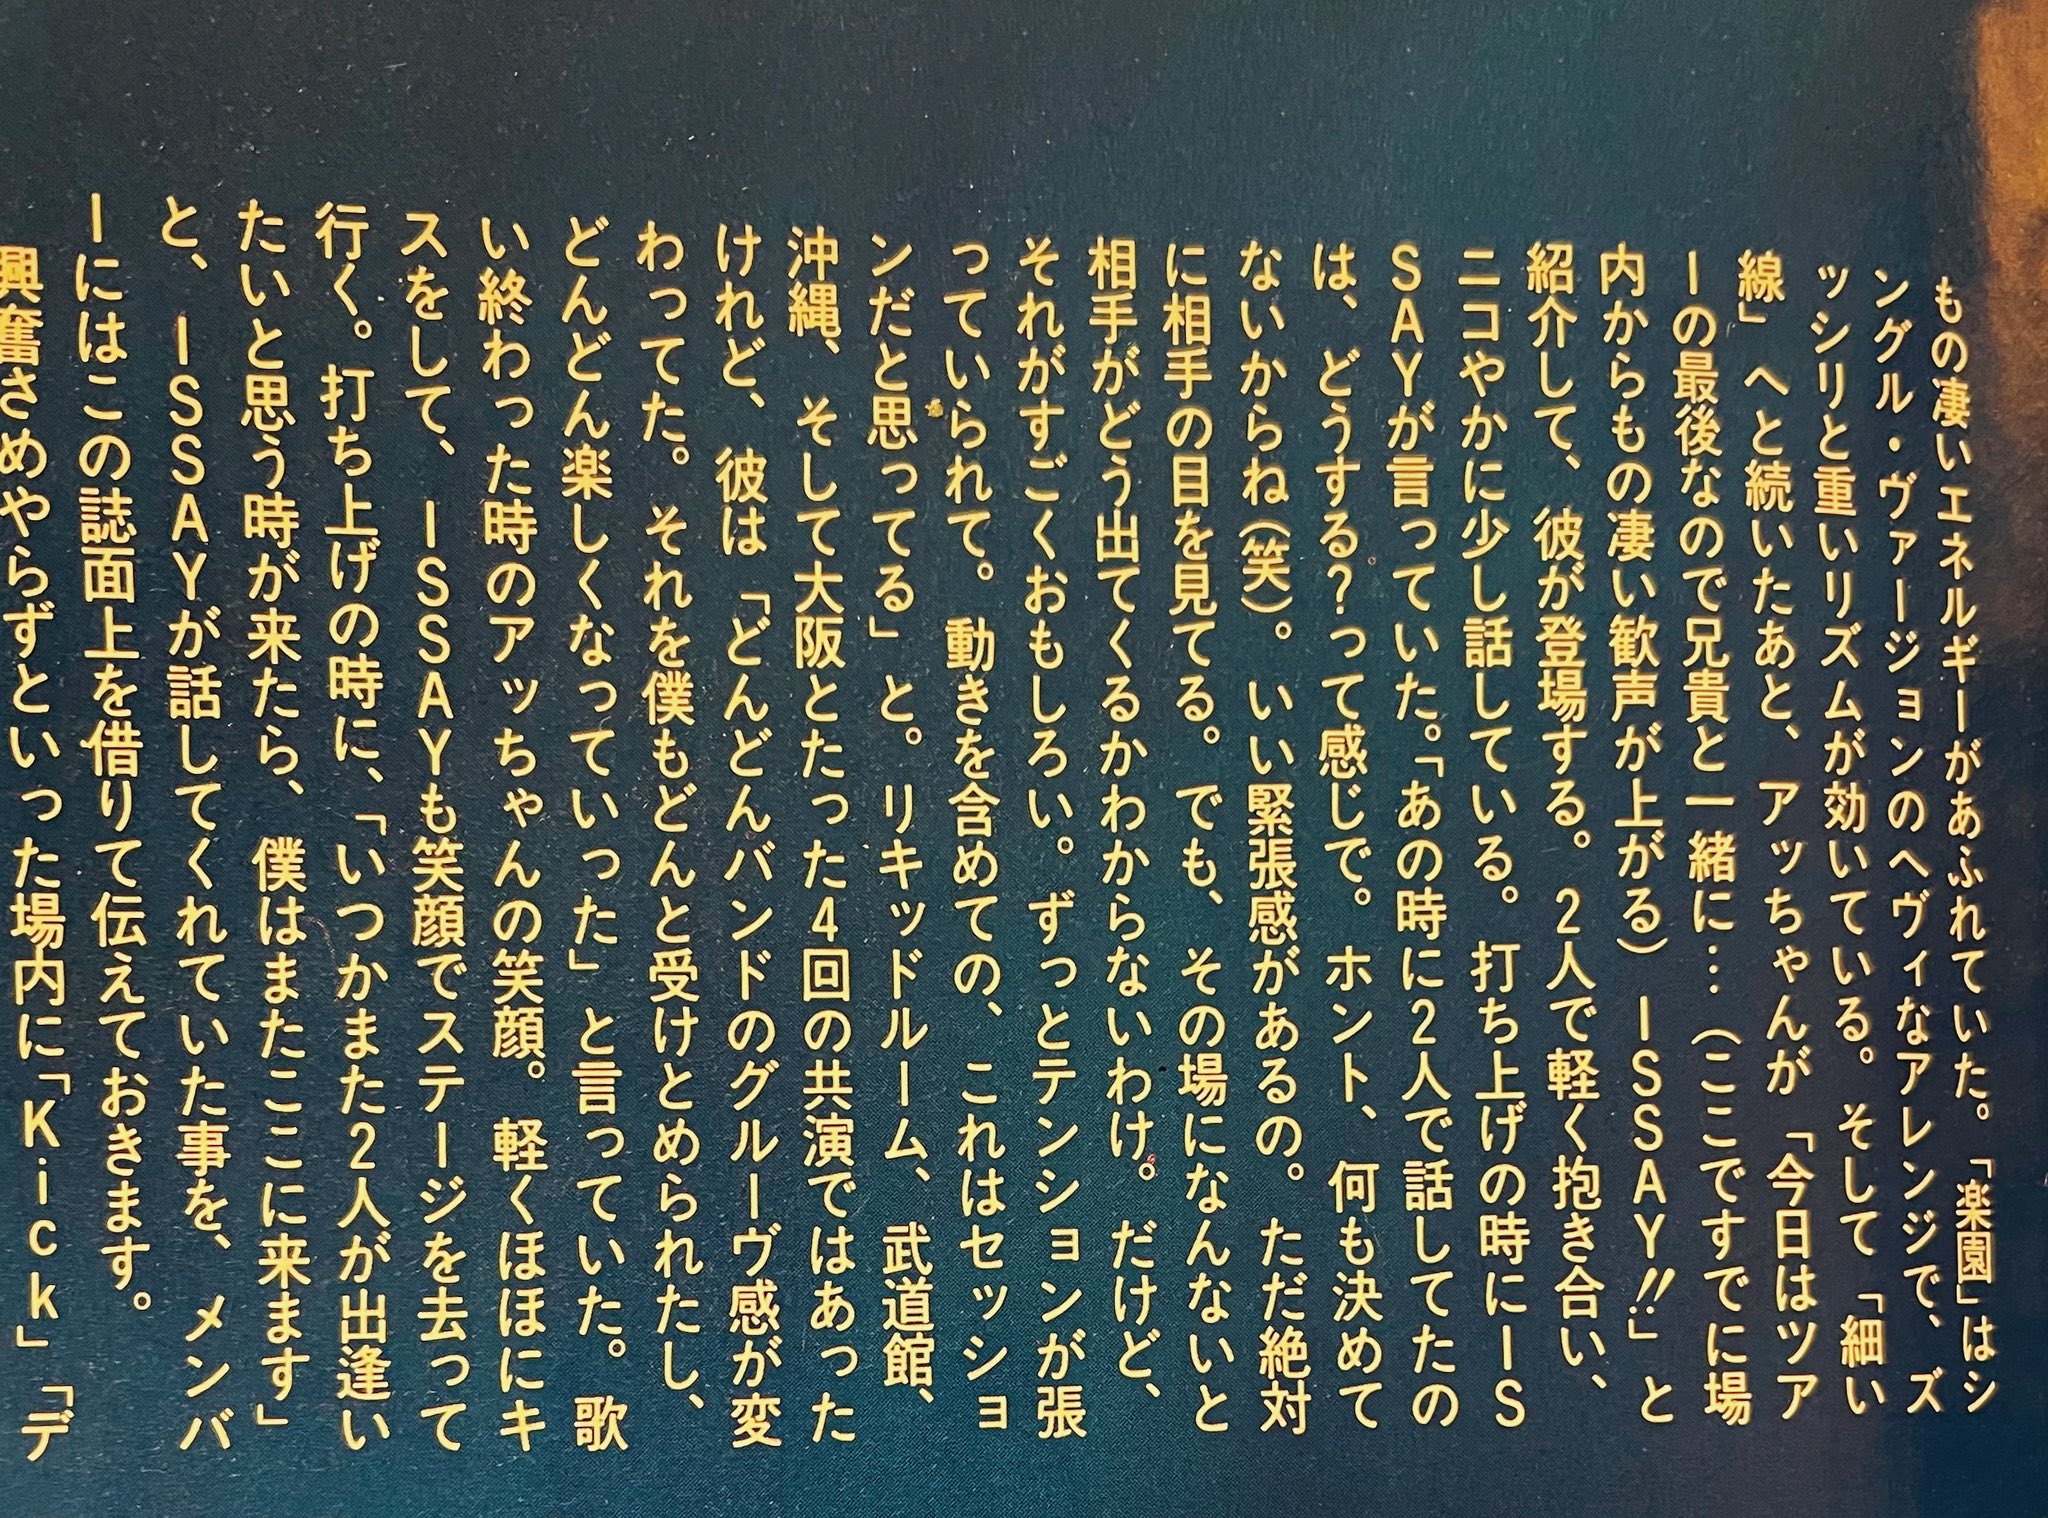 もの凄いエネルギーがあふれていた。「楽園」はシ
ングル・ヴァージョンのヘヴィなアレンジで、ズ
ッシリと重いリズムが効いている。そして「細い
線」へと続いたあと、アッちゃんが「今日はツア
ーの最後なので兄貴と一緒に…（ここですでに場
内からもの凄い歓声が上がる）ISSAY!!」と
紹介して、彼が登場する。2人で軽く抱き合い、
ニコやかに少し話している。打ち上げの時にIS
SAYが言っていた。「あの時に2人で話してたの
は、どうする？って感じで。ホント、何も決めて
ないからね（笑）。いい緊張感があるの。ただ絶対
に相手の目を見てる。でも、その場になんないと
相手がどう出てくるかわからないわけ。だけど、
それがすごくおもしろい。ずっとテンションが張
っていられて。動きを含めての、これはセッショ
ンだと思ってる」と。リキッドルーム、武道館、
沖縄、そして大阪とたった4回の共演ではあった
けれど、彼は「どんどんバンドのグルーヴ感が変
わってた。それを僕もどんと受けとめられたし、
どんどん楽しくなっていった」と言っていた。歌
い終わった時のアッちゃんの笑顔。軽くほほにキ
スをして、ISSAYも笑顔でステージを去って
行く。打ち上げの時に、「いつかまた2人が出逢い
たいと思う時が来たら、僕はまたここに来ます」
と、ISSAYが話してくれていた事を、メンバ
ーにはこの誌面上を借りて伝えておきます。
興奮さめやらずといった場内に「Kick」「デ